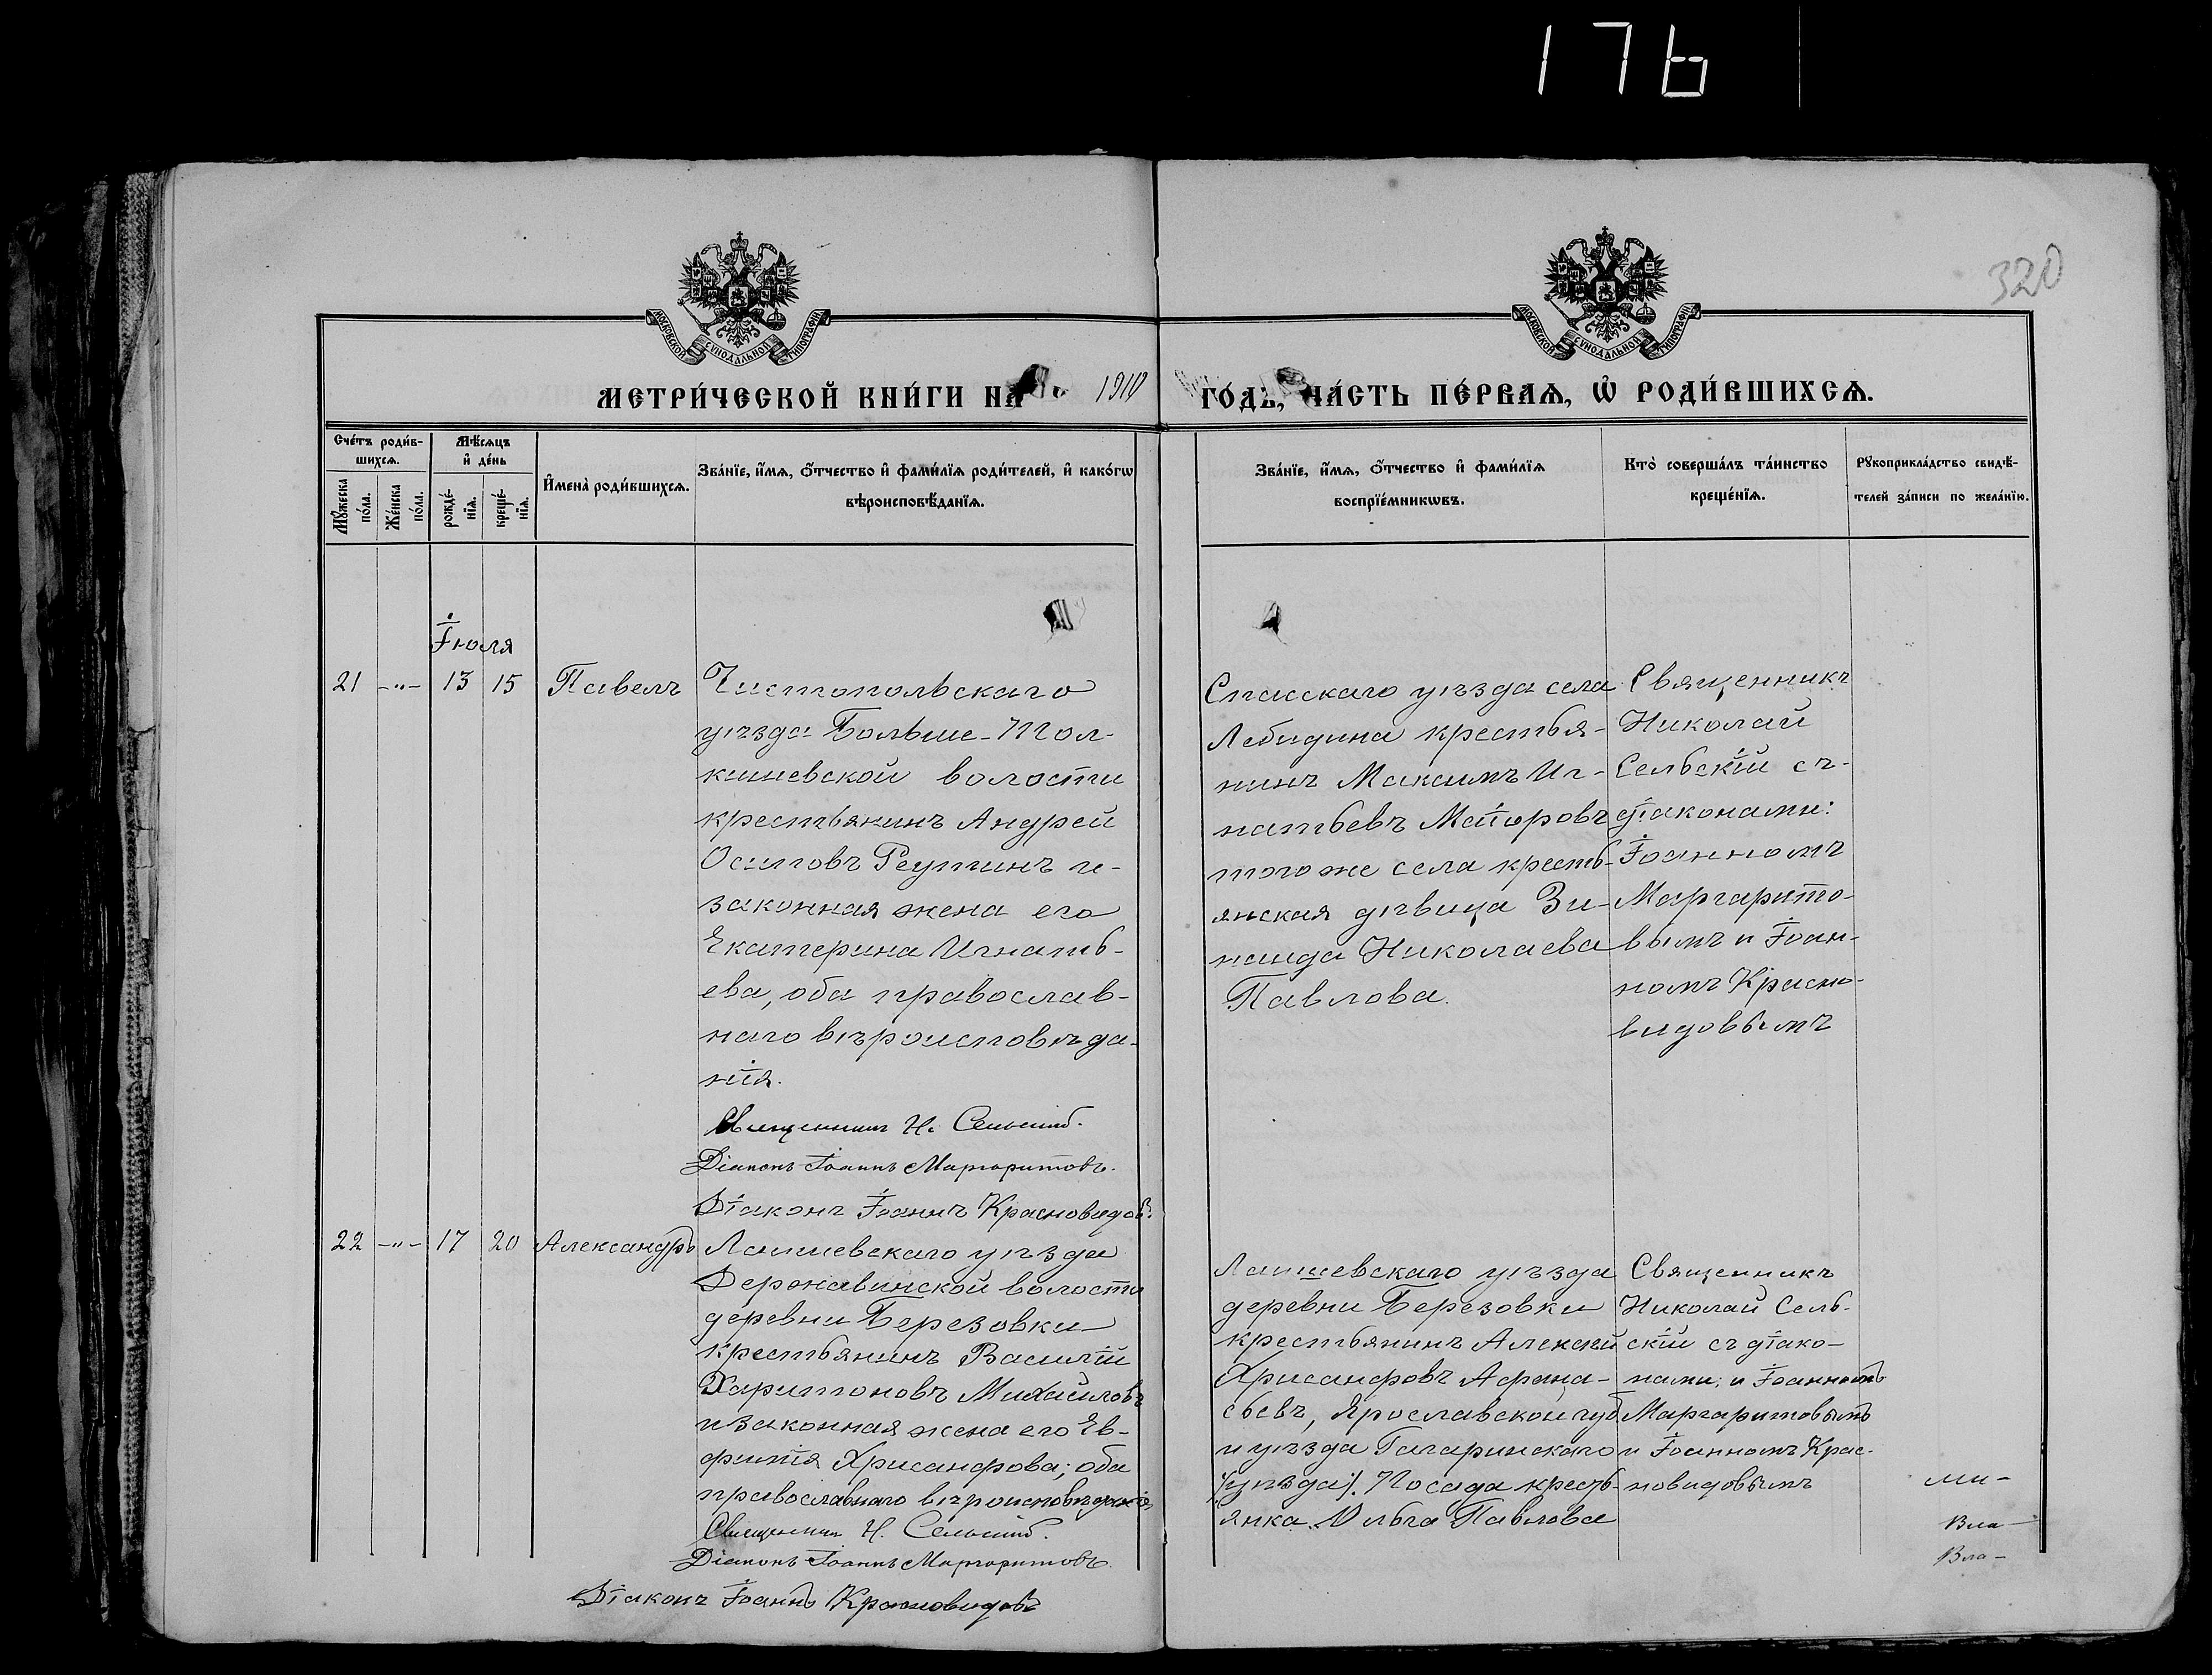 176
320
МОСКОВСКОЙ СѴНОДАЛЬНОЙ ТИПОГРАФІИ
МОСКОВСКОЙ СѴНОДАЛЬНОЙ ТИПОГРАФІИ
МЕТРИ́ЧЕСКОЙ КНИ́ГИ НА 1910 ГО́ДЪ, ЧА́СТЬ ПЕ́РВАѦ, Ѡ҆ РОДИ́ВШИХСѦ.
Сче́тъ роди́в-
шихсѧ.
Мꙋ́жеска
по́ла.
Же́нска
по́ла.
Мѣ́сѧцъ
и҆ де́нь
рожде́-
нїѧ.
креще́-
нїѧ.
И҆мена̀ роди́вшихсѧ.
Зва́нїе, и҆́мѧ, ѻ҆́тчество и҆ фами́лїѧ роди́телей, и҆ како́гѡ
вѣроисповѣ́данїѧ.
Зва́нїе, и҆́мѧ, ѻ҆́тчество и҆ фами́лїѧ
воспрїе́мникѡвъ.
Кто̀ соверша́лъ та́инство
креще́нїѧ.
Рꙋкоприкла́дство свидѣ́-
телей за́писи по жела́нїю.
Іюля
21 -"- 13 15 Павелъ
Чистопольскаго
уѣзда Больше-Тол-
кишевской волости
крестьянинъ Андрей
Осиповъ Реутинъ и
законная жена его
Екатерина Игнать-
ева, оба православ-
наго вѣроисповѣда-
нія.
Священникъ Н. Сельскій.
Діаконъ Іоаннъ Маргаритовъ.
Діаконъ Іоаннъ Красновидовъ.
Спасскаго уѣзда села
Лебидина крестья-
нинъ Максимъ Иг-
натьевъ Маіоровъ
того же села кресть-
янская дѣвица Зи-
наида Николаева
Павлова.
Священникъ
Николай
Сельскій съ-
діаконами:
Іоанномъ
Маргарито-
вымъ и Іоан-
номъ Красно-
видовымъ
22 -"- 17 20 Александръ
Лаишевскаго уѣзда
Державинской волости
деревни Березовки
крестьянинъ Василій
Харитоновъ Михайловъ
и законная жена его Ев-
фимія Хрисанфова; оба
православнаго вѣроисповѣданія
Священникъ Н. Сельскій.
Діаконъ Іоаннъ Маргаритовъ.
Діаконъ Іоаннъ Красновидовъ
Лаишевскаго уѣзда
деревни Березовки
крестьянинъ Алексѣй
Хрисанфовъ Афана-
сьевъ, Ярославской губ
и уѣзда Гагаринскаго
/уѣзда/. Посада кресть-
янка Ольга Павлова
Священникъ
Николай Сель-
скій съ діако-
нами: и Іоанномъ
Маргаритовымъ
и Іоанномъ Крас-
новидовымъ
ми-
Вла-
Вла-